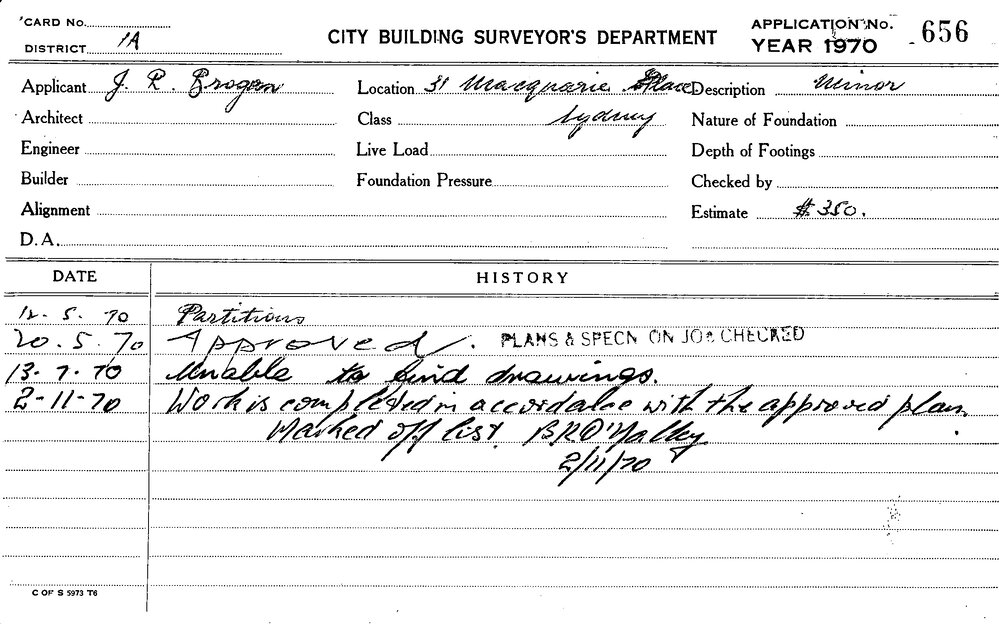 CARD No.
DISTRICT 1A
CITY BUILDING SURVEYOR'S DEPARTMENT
APPLICATION No. 656
YEAR 1970
Applicant J. R. Brogan
Location 31 Macquarie Place
Description Minor
Architect
Class Sydney
Nature of Foundation
Engineer
Live Load
Depth of Footings
Builder
Foundation Pressure
Checked by
Alignment
Estimate $ 350.
D.A.
DATE HISTORY
12. 5. 70 Partitions
20. 5. 70 Approved. PLANS & SPECN ON JOB CHECKED
13. 7. 70 Unable to find drawings.
2-11-70 Work is completed in accordance with the approved plan.
Marked off list.
2/11/70
C OF S 5973 T6